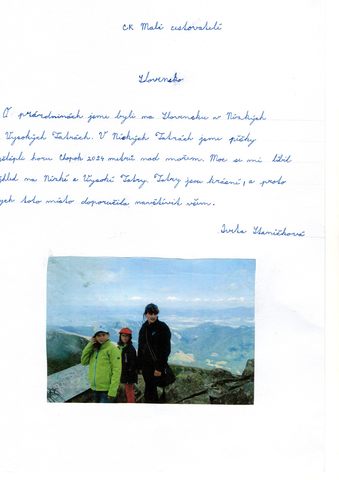 CK Malí cestovatelé
Slovensko
O prázdninách jsme byli na Slovensku v Nízkých
Vysokých Tatrách. V Nízkých Tatrách jsme pěšky
horu Chopok 2024 metrů nad mořem. Moc se mi líbil
na Nízké a Vysoké Tatry. Tatry jsou krásné, a proto
toto místo doporučila navštívit všem.
Ivka